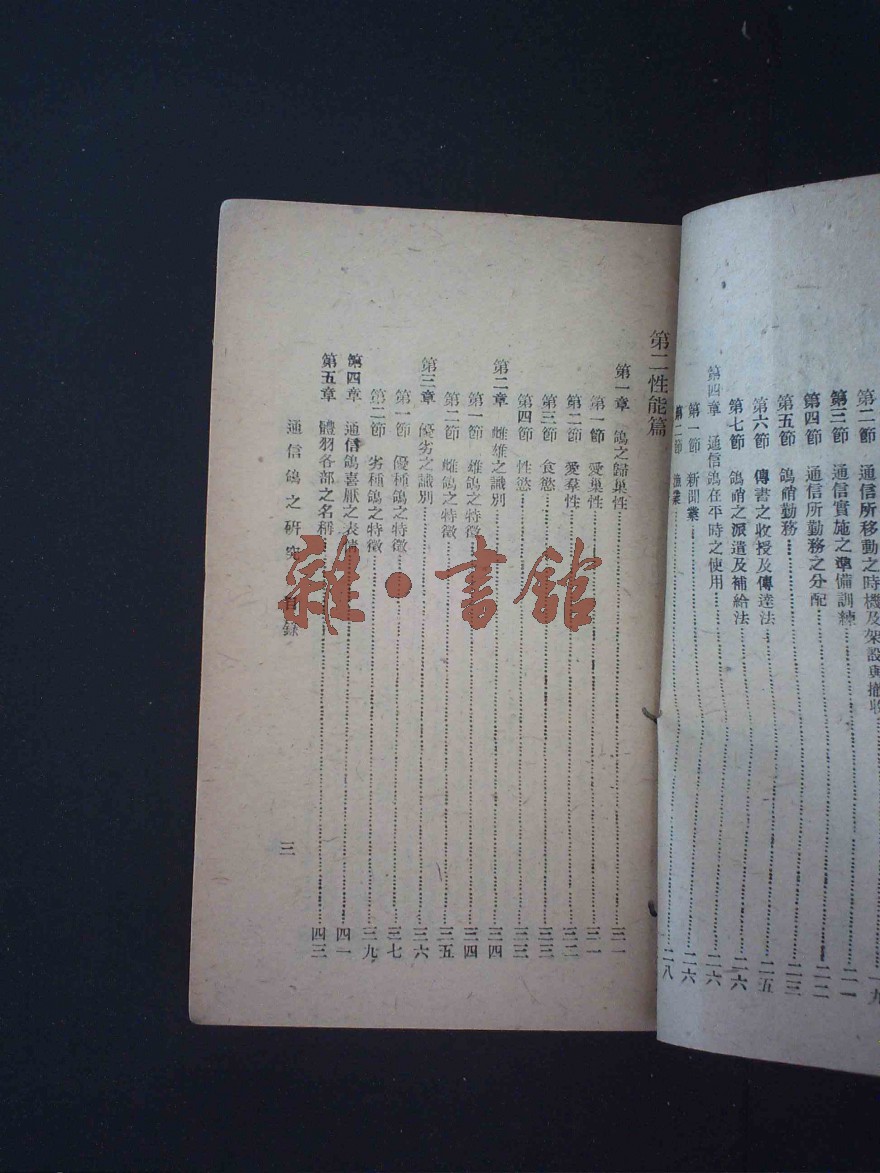 第二節 通信所移動之時機及架設與撤收……一九
第三節 通信實施之準備訓練……二一
第四節 通信所勤務之分配……二二
第五節 鴿哨勤務……二三
第六節 傳書之收授及傳達法……二五
第七節 鴿哨之派遣及補給法……二六
第四章 通信鴿在平時之使用……二六
第一節 新聞業……二六
第二節 漁業……二八
第二性能篇
第一章 鴿之歸巢性……三一
第一節 愛巢性……三一
第二節 愛羣性……三二
第三節 食慾……三三
第四節 性慾……三三
第二章 雌雄之識別……三四
第一節 雄鴿之特徵……三四
第二節 雌鴿之特徵……三五
第三章 優劣之識別……三六
第一節 優種鴿之特徵……三七
第二節 劣種鴿之特徵……三九
第四章 通信鴿喜厭之表情……四一
第五章 體羽各部之名稱……四三
通信鴿之研究 目錄 三
雜·書館